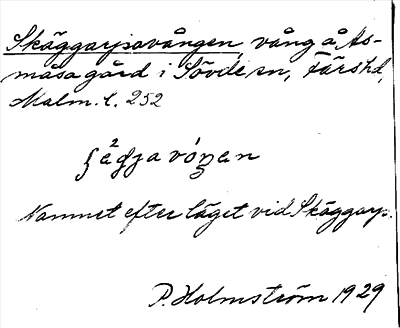 Skäggarpsvången, vång å As-
måsa gård i Sövde sn, Färs hd,
Malm. l. 252
Namnet efter läget vid Skäggarp.
P. Holmström 1929